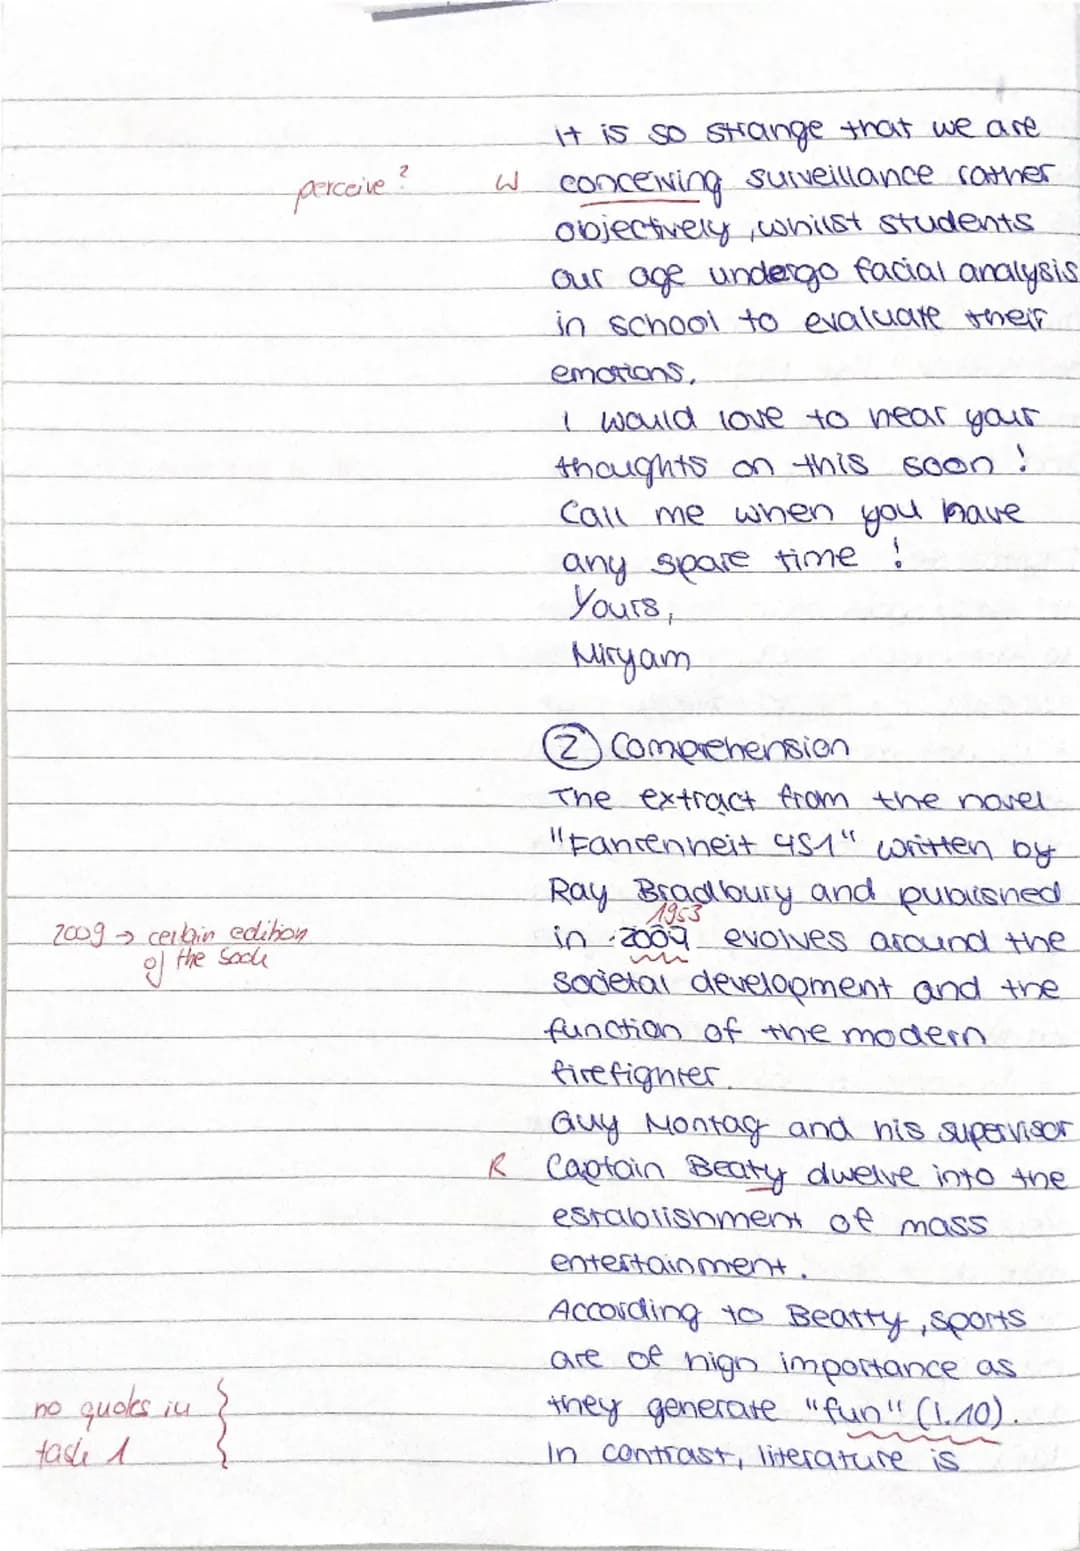 It is so strange that we are
perceive? W conceiving surveillance rather
objectively, whilst students
our age undergo facial analysis
in school to evaluate their
emotions.
I would love to hear your
thoughts on this soon!
Call me when you have
any spare time!
Yours,
Miryam
② Comprehension
The extract from the novel
"Fahrenheit 451" written by
Ray Bradbury and published
1953
2009 → certain edition in 2009 evolves around the
of the book societal development and the
function of the modern
firefighter.
Guy Montag and his supervisor
R Captain Beaty dwelve into the
establishment of mass
entertainment.
According to Beatty, sports
are of high importance as
no quotes in they generate "fun" (l.10).
task 1 In contrast, literature is